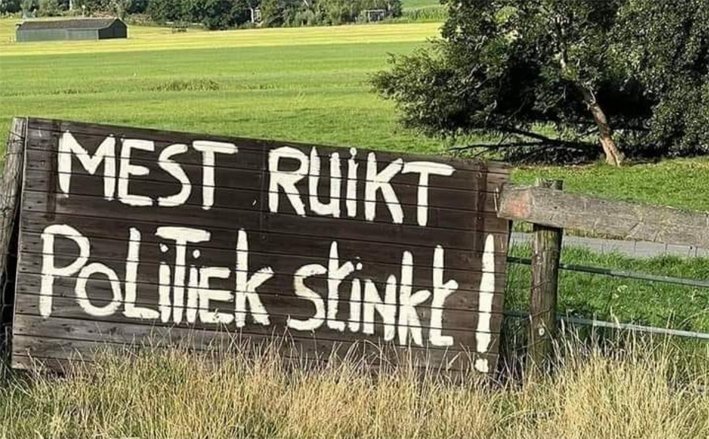 MEST RUIKT
POLITIEK STINKT!